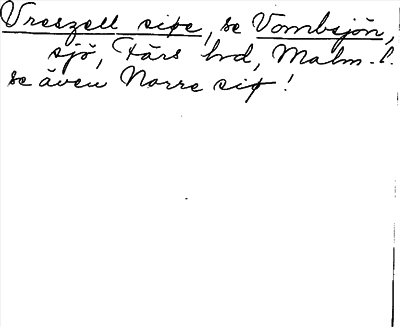 Vreszell siøe, se Vombsjön,
sjö, Färs hd, Malm. l.
se även Norre siø!